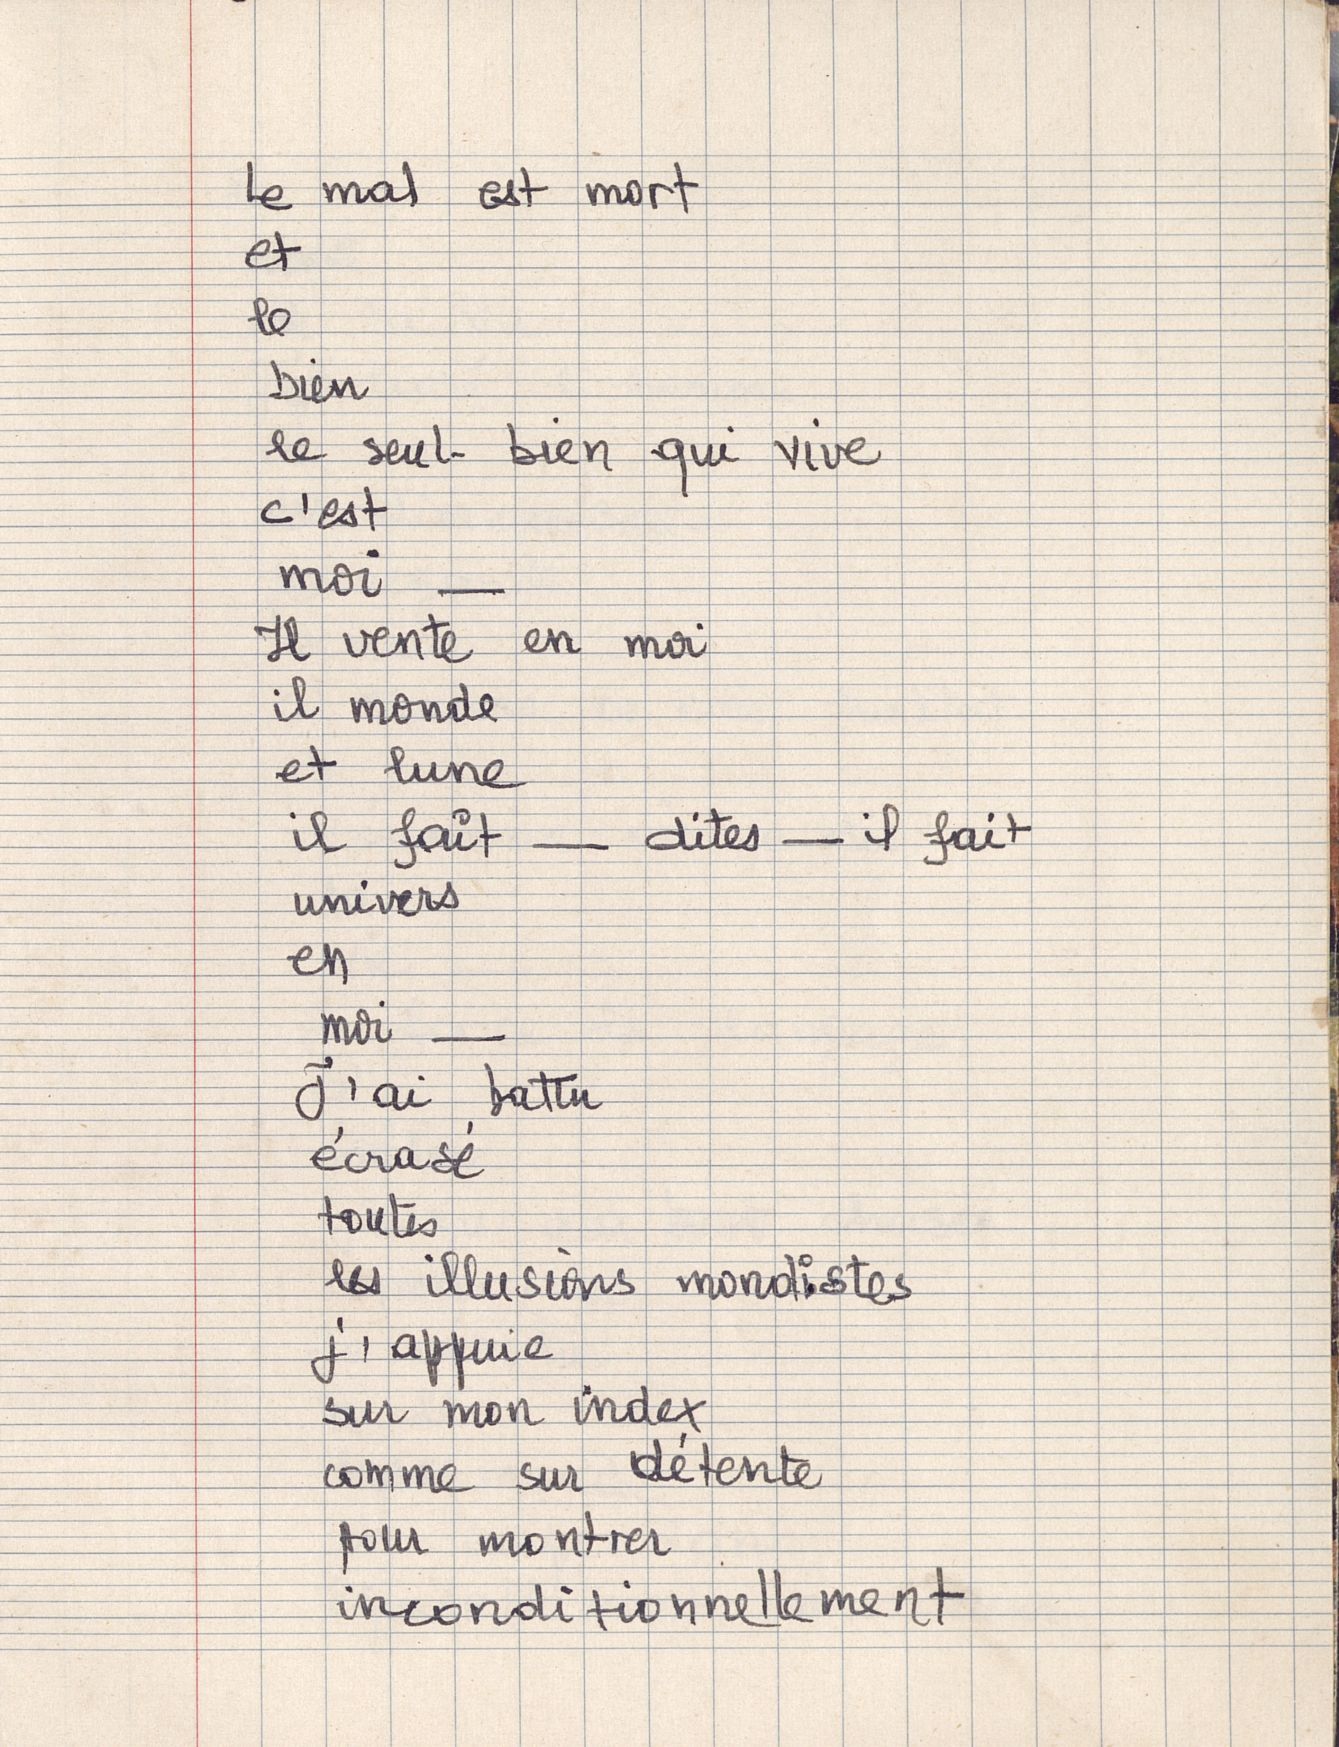 Le mal est mort
et
le
bien
le seul bien qui vive
c'est
moi —
Il vente en moi
il monde
et lune
il fait — dites — il fait
univers
en
moi —
J'ai battu
écrasé
toutes
les illusions mondistes
j'appuie
sur mon index
comme sur détente
pour montrer
inconditionnellement